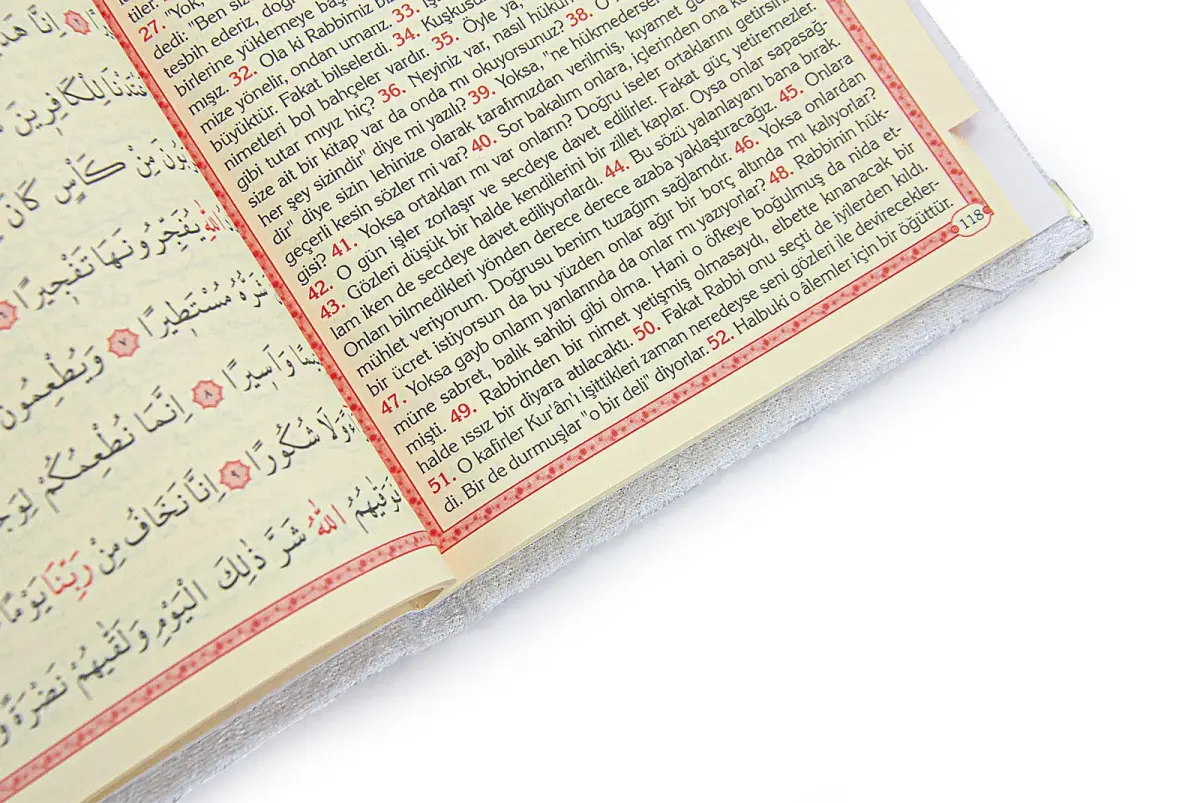 إِنَّا هَدَ
لِلْكَافِرِينَ
مِنْ كَأْسٍ كَانَ
اللّٰهِ يُفَجِّرُونَهَا تَفْجِيرًا ٦
شَرُّهُ مُسْتَطِيرًا ٧ وَيُطْعِمُونَ
وَاَسِيرًا ٨ اِنَّمَا نُطْعِمُكُمْ لِوَجْ
وَلَا شُكُورًا ٩ اِنَّا نَخَافُ مِنْ رَبِّنَا يَوْمًا
اللّٰهُ شَرَّ ذٰلِكَ الْيَوْمِ وَلَقّٰيهُمْ نَضْرَةً
tiler.
27. "Yok,
dedi: "Ben siz
tesbih ederiz, doğ
birlerine yüklemeye başla
mışız. 32. Ola ki Rabbimiz b
mize yönelir, ondan umarız. 33.
büyüktür. Fakat bilselerdi. 34. Kuşkusu
nimetleri bol bahçeler vardır. 35. Öyle ya,
gibi tutar mıyız hiç? 36. Neyiniz var, nasıl hüküm
size ait bir kitap var da onda mı okuyorsunuz? 38. O
her şey sizindir" diye mi yazılı? 39. Yoksa, "ne hükmederseniz
dir" diye sizin lehinize olarak tarafımızdan verilmiş, kıyamet g
geçerli kesin sözler mi var? 40. Sor bakalım onlara, içlerinden ona ke
gisi? 41. Yoksa ortakları mı var onların? Doğru iseler ortaklarını getirsin
42. O gün işler zorlaşır ve secdeye davet edilirler. Fakat güç yetiremezler.
43. Gözleri düşük bir halde kendilerini bir zillet kaplar. Oysa onlar sapasağ-
lam iken de secdeye davet ediliyorlardı. 44. Bu sözü yalanlayanı bana bırak.
Onları bilmedikleri yönden derece derece azaba yaklaştıracağız. 45. Onlara
mühlet veriyorum. Doğrusu benim tuzağım sağlamdır. 46. Yoksa onlardan
bir ücret istiyorsun da bu yüzden onlar ağır bir borç altında mı kalıyorlar?
47. Yoksa gayb onların yanlarında da onlar mı yazıyorlar? 48. Rabbinin hük-
müne sabret, balık sahibi gibi olma. Hani o öfkeye boğulmuş da nida et-
mişti. 49. Rabbinden bir nimet yetişmiş olmasaydı, elbette kınanacak bir
halde ıssız bir diyara atılacaktı. 50. Fakat Rabbi onu seçti de iyilerden kıldı.
51. O kafirler Kur'ân'ı işittikleri zaman neredeyse seni gözleri ile devirecekler-
di. Bir de durmuşlar "o bir deli" diyorlar. 52. Halbuki o âlemler için bir öğüttür.
118